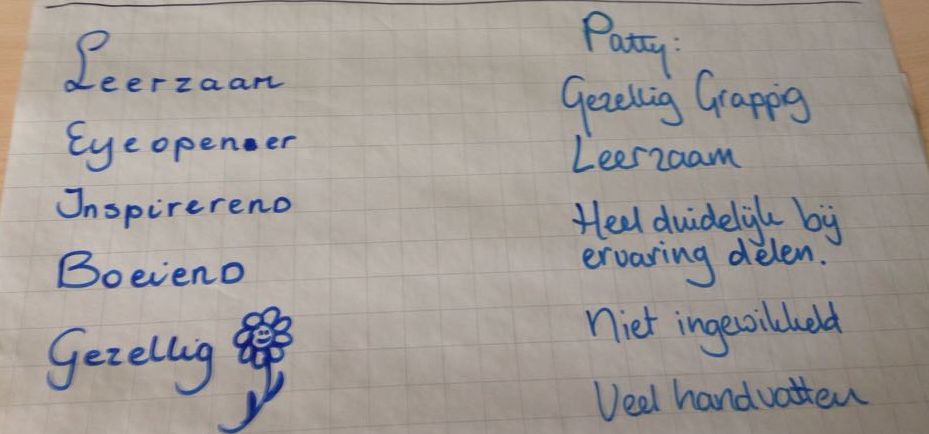 Leerzaam
Eyeopener
Inspirerend
Boeiend
Gezellig
Patty:
Gezellig Grappig
Leerzaam
Heel duidelijk bij
ervaring delen.
Niet ingewikkeld
Veel handvatten